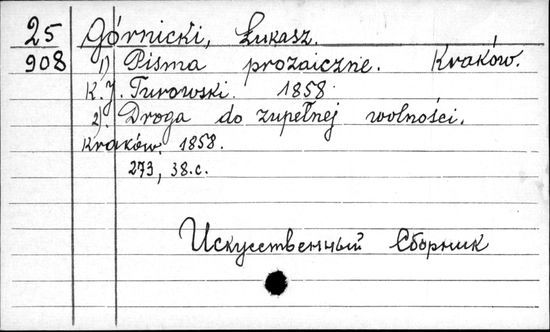 25
908
Górnicki, Łukasz.
1) Pisma prozaiczne. Kraków.
K. J. Turowski. 1858
2). Droga do zupełnej wolności.
Kraków. 1858.
273, 38.c.
Искусственный Сборник